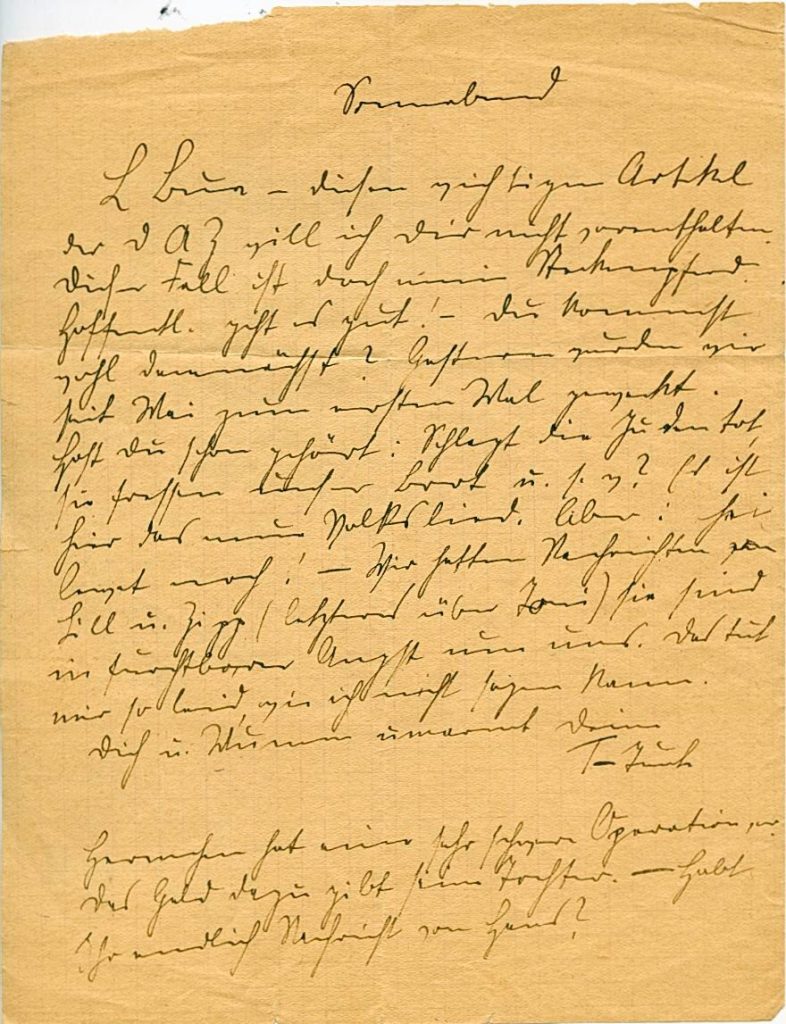 Sonnabend
L. Bur – diesen wichtigen Artikel
der DAZ will ich Dir nicht vorenthalten.
Dieser Fall ist doch mein Steckenpferd.
Hoffentl. geht es gut! – Du kommst
wohl demnächst? Gestern wurden wir
seit Mai zum ersten Mal geweckt.
Hast Du schon gehört: Schlagt die Juden tot,
sie fressen unser Brot u. s. w? Es ist
hier das neue Volkslied. Aber:
noch! – Wir hatten Nachrichten von
Lill u. Zipp (letzteres über Toni) sie sind
in furchtbarer Angst um uns. Das tut
mir so leid, wie ich nicht sagen kann.
Dich u. Mumm umarmt Deine
T–
Hermchen hat eine sehr schwere Operation,
das Geld dazu gibt seine Tochter. – Habt
Ihr endlich Nachricht von Hans?